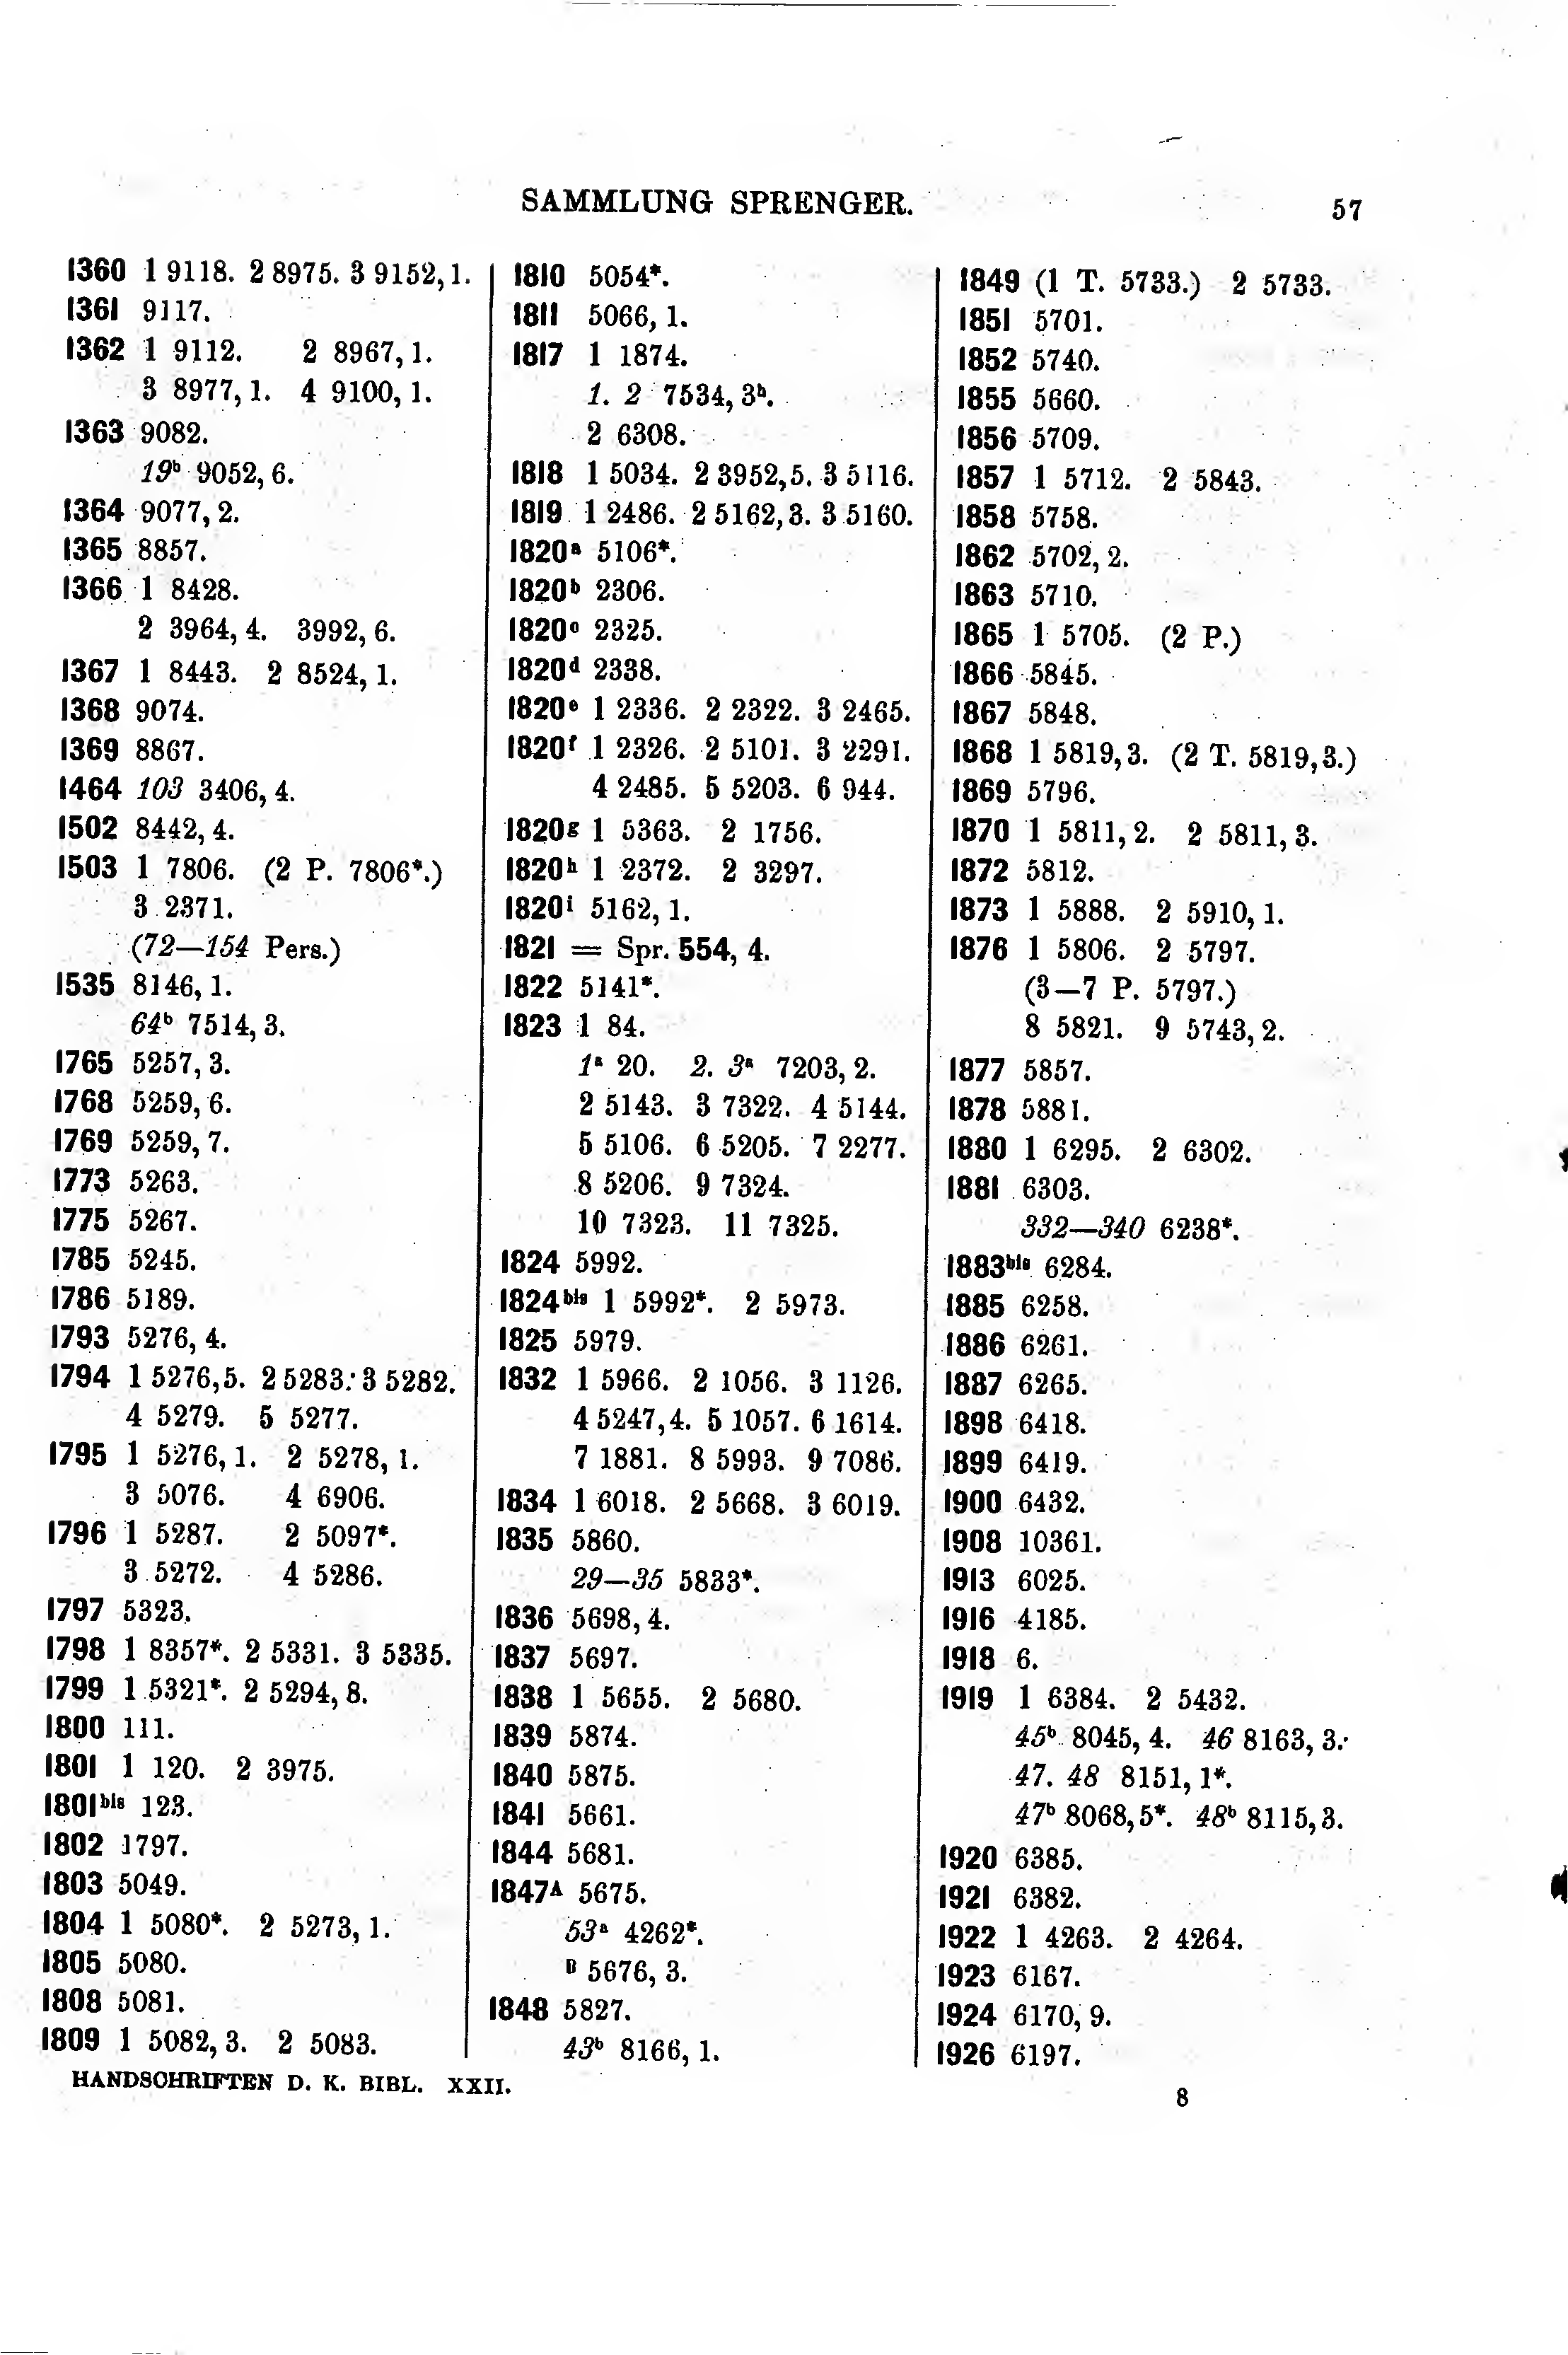 SAMMLUNG SPRENGER.
57
1360 1 9118. 2 8975. 3 9152, 1.
1361 9117.
1362 1 9112. 2 8967, 1.
3 8977, 1. 4 9100, 1.
1363 9082.
19ᵇ 9052, 6.
1364 9077, 2.
1365 8857.
1366 1 8428.
2 3964, 4. 3992, 6.
1367 1 8443. 2 8524, 1.
1368 9074.
1369 8867.
1464 103 3406, 4.
1502 8442, 4.
1503 1 7806. (2 P. 7806*.)
3 2371.
(72—154 Pers.)
1535 8146, 1.
64ᵇ 7514, 3.
1765 5257, 3.
1768 5259, 6.
1769 5259, 7.
1773 5263.
1775 5267.
1785 5245.
1786 5189.
1793 5276, 4.
1794 1 5276, 5. 2 5283. 3 5282.
4 5279. 5 5277.
1795 1 5276, 1. 2 5278, 1.
3 5076. 4 6906.
1796 1 5287. 2 5097*.
3 5272. 4 5286.
1797 5323.
1798 1 8357*. 2 5331. 3 5335.
1799 1 5321*. 2 5294, 8.
1800 111.
1801 1 120. 2 3975.
1801ᵇⁱˢ 123.
1802 1797.
1803 5049.
1804 1 5080*. 2 5273, 1.
1805 5080.
1808 5081.
1809 1 5082, 3. 2 5083.
1810 5054*.
1811 5066, 1.
1817 1 1874.
1. 2 7534, 3ʰ.
2 6308.
1818 1 5034. 2 3952, 5. 3 5116.
1819 1 2486. 2 5162, 3. 3 5160.
1820ᵃ 5106*.
1820ᵇ 2306.
1820ᶜ 2325.
1820ᵈ 2338.
1820ᵉ 1 2336. 2 2322. 3 2465.
1820ᶠ 1 2326. 2 5101. 3 2291.
4 2485. 5 5203. 6 944.
1820ᵍ 1 5363. 2 1756.
1820ʰ 1 2372. 2 3297.
1820ⁱ 5162, 1.
1821 = Spr. 554, 4.
1822 5141*.
1823 1 84.
1ᵃ 20. 2. 3ᵃ 7203, 2.
2 5143. 3 7322. 4 5144.
5 5106. 6 5205. 7 2277.
8 5206. 9 7324.
10 7323. 11 7325.
1824 5992.
1824ᵇⁱˢ 1 5992*. 2 5973.
1825 5979.
1832 1 5966. 2 1056. 3 1126.
4 5247, 4. 5 1057. 6 1614.
7 1881. 8 5993. 9 7086.
1834 1 6018. 2 5668. 3 6019.
1835 5860.
29—35 5833*.
1836 5698, 4.
1837 5697.
1838 1 5655. 2 5680.
1839 5874.
1840 5875.
1841 5661.
1844 5681.
1847ᴬ 5675.
53ᵃ 4262*.
ᴮ 5676, 3.
1848 5827.
43ᵇ 8166, 1.
1849 (1 T. 5733.) 2 5733.
1851 5701.
1852 5740.
1855 5660.
1856 5709.
1857 1 5712. 2 5843.
1858 5758.
1862 5702, 2.
1863 5710.
1865 1 5705. (2 P.)
1866 5845.
1867 5848.
1868 1 5819, 3. (2 T. 5819, 3.)
1869 5796.
1870 1 5811, 2. 2 5811, 3.
1872 5812.
1873 1 5888. 2 5910, 1.
1876 1 5806. 2 5797.
(3—7 P. 5797.)
8 5821. 9 5743, 2.
1877 5857.
1878 5881.
1880 1 6295. 2 6302.
1881 6303.
332—340 6238*.
1883ᵇⁱˢ 6284.
1885 6258.
1886 6261.
1887 6265.
1898 6418.
1899 6419.
1900 6432.
1908 10361.
1913 6025.
1916 4185.
1918 6.
1919 1 6384. 2 5432.
45ᵇ 8045, 4. 46 8163, 3.
47. 48 8151, 1*.
47ᵇ 8068, 5*. 48ᵇ 8115, 3.
1920 6385.
1921 6382.
1922 1 4263. 2 4264.
1923 6167.
1924 6170, 9.
1926 6197.
HANDSCHRIFTEN D. K. BIBL. XXII.
8